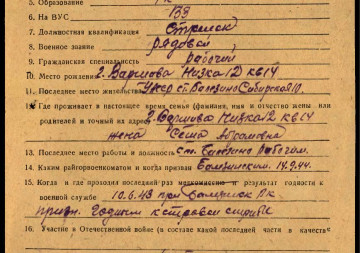 5. Образование
6. На ВУС 133
7. Должностная квалификация Стрелок
8. Военное звание рядовой
9. Гражданская специальность рабочий
10. Место рождения г. Варшова Низка 12 кв 14
11. Последнее место жительства ст. Сибирской
12. Где проживает в настоящее время семья (фамилия, имя и отчество жены или
родителей и точный их адрес) г. Варшова Низка 12 кв 14
жена Абрамовна
13. Последнее место работы и должность ст. рабочим
14. Каким райгорвоенкоматом и когда призван 14.9.44.
15. Когда и где проходил последний раз медкомиссию и результат годности к
военной службе 10.6.43 при РК
призн. годным к строевой службе
16. Участие в Отечественной войне (в составе какой последней части в качестве